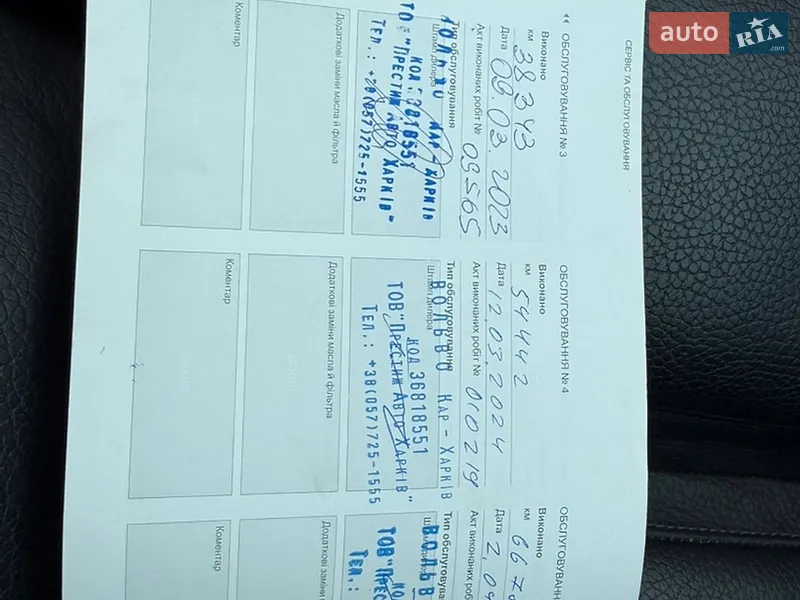 auto RIA.com
СЕРВІС ТА ОБСЛУГОВУВАННЯ
ОБСЛУГОВУВАННЯ № 3
Виконано
км 38343
Дата 09.03.2023
Акт виконаних робіт № 09565
Тип обслуговування
Штамп дилера
КАР ХАРКІВ
КОД: 36818551
"ПРЕСТИЖ АВТО ХАРКІВ"
ТЕЛ.: +38(057)725-1555
Додаткові заміни масла й фільтра
Коментар
ОБСЛУГОВУВАННЯ № 4
Виконано
км 54442
Дата 12.03.2024
Акт виконаних робіт № 010219
Тип обслуговування
Штамп дилера
ВОЛЬВО КАР - ХАРКІВ
КОД 36818551
ТОВ "ПРЕСТИЖ АВТО ХАРКІВ"
ТЕЛ.: +38(057)725-1555
Додаткові заміни масла й фільтра
Коментар
Виконано
км
Дата
Акт виконаних робіт
Тип обслуговування
Штамп
ТЕЛ.:
Додаткові заміни
Коментар